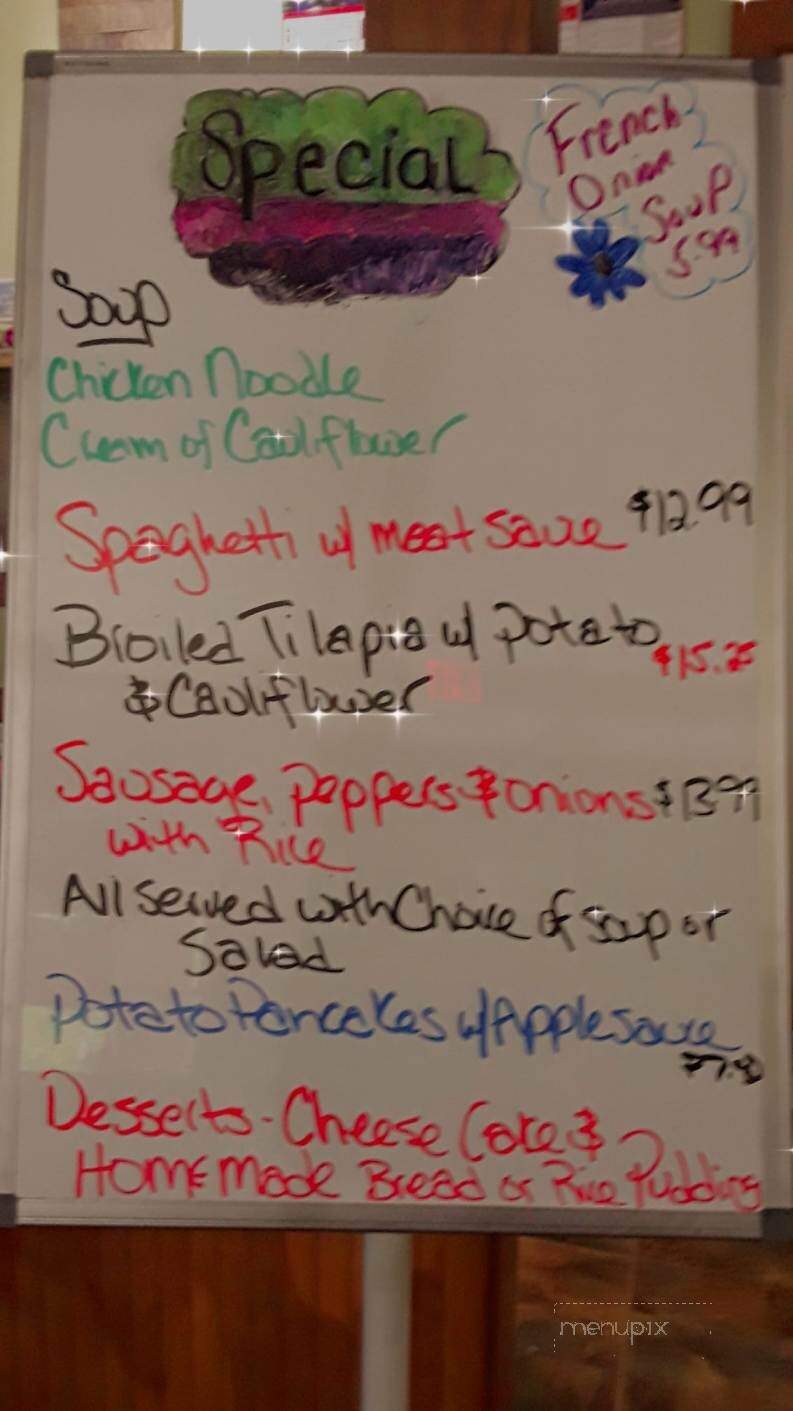 Special
French
Onion
Soup
5.99
Soup
Chicken Noodle
Cream of Cauliflower
Spaghetti w/ meat sauce $12.99
Broiled Tilapia w/ potato
& Cauliflower $15.25
Sausage, peppers & onions $13.99
with Rice
All served with Choice of soup or
Salad
Potato Pancakes w/ Applesauce
Desserts - Cheese Cake &
Homemade Bread or Rice Pudding
menupix